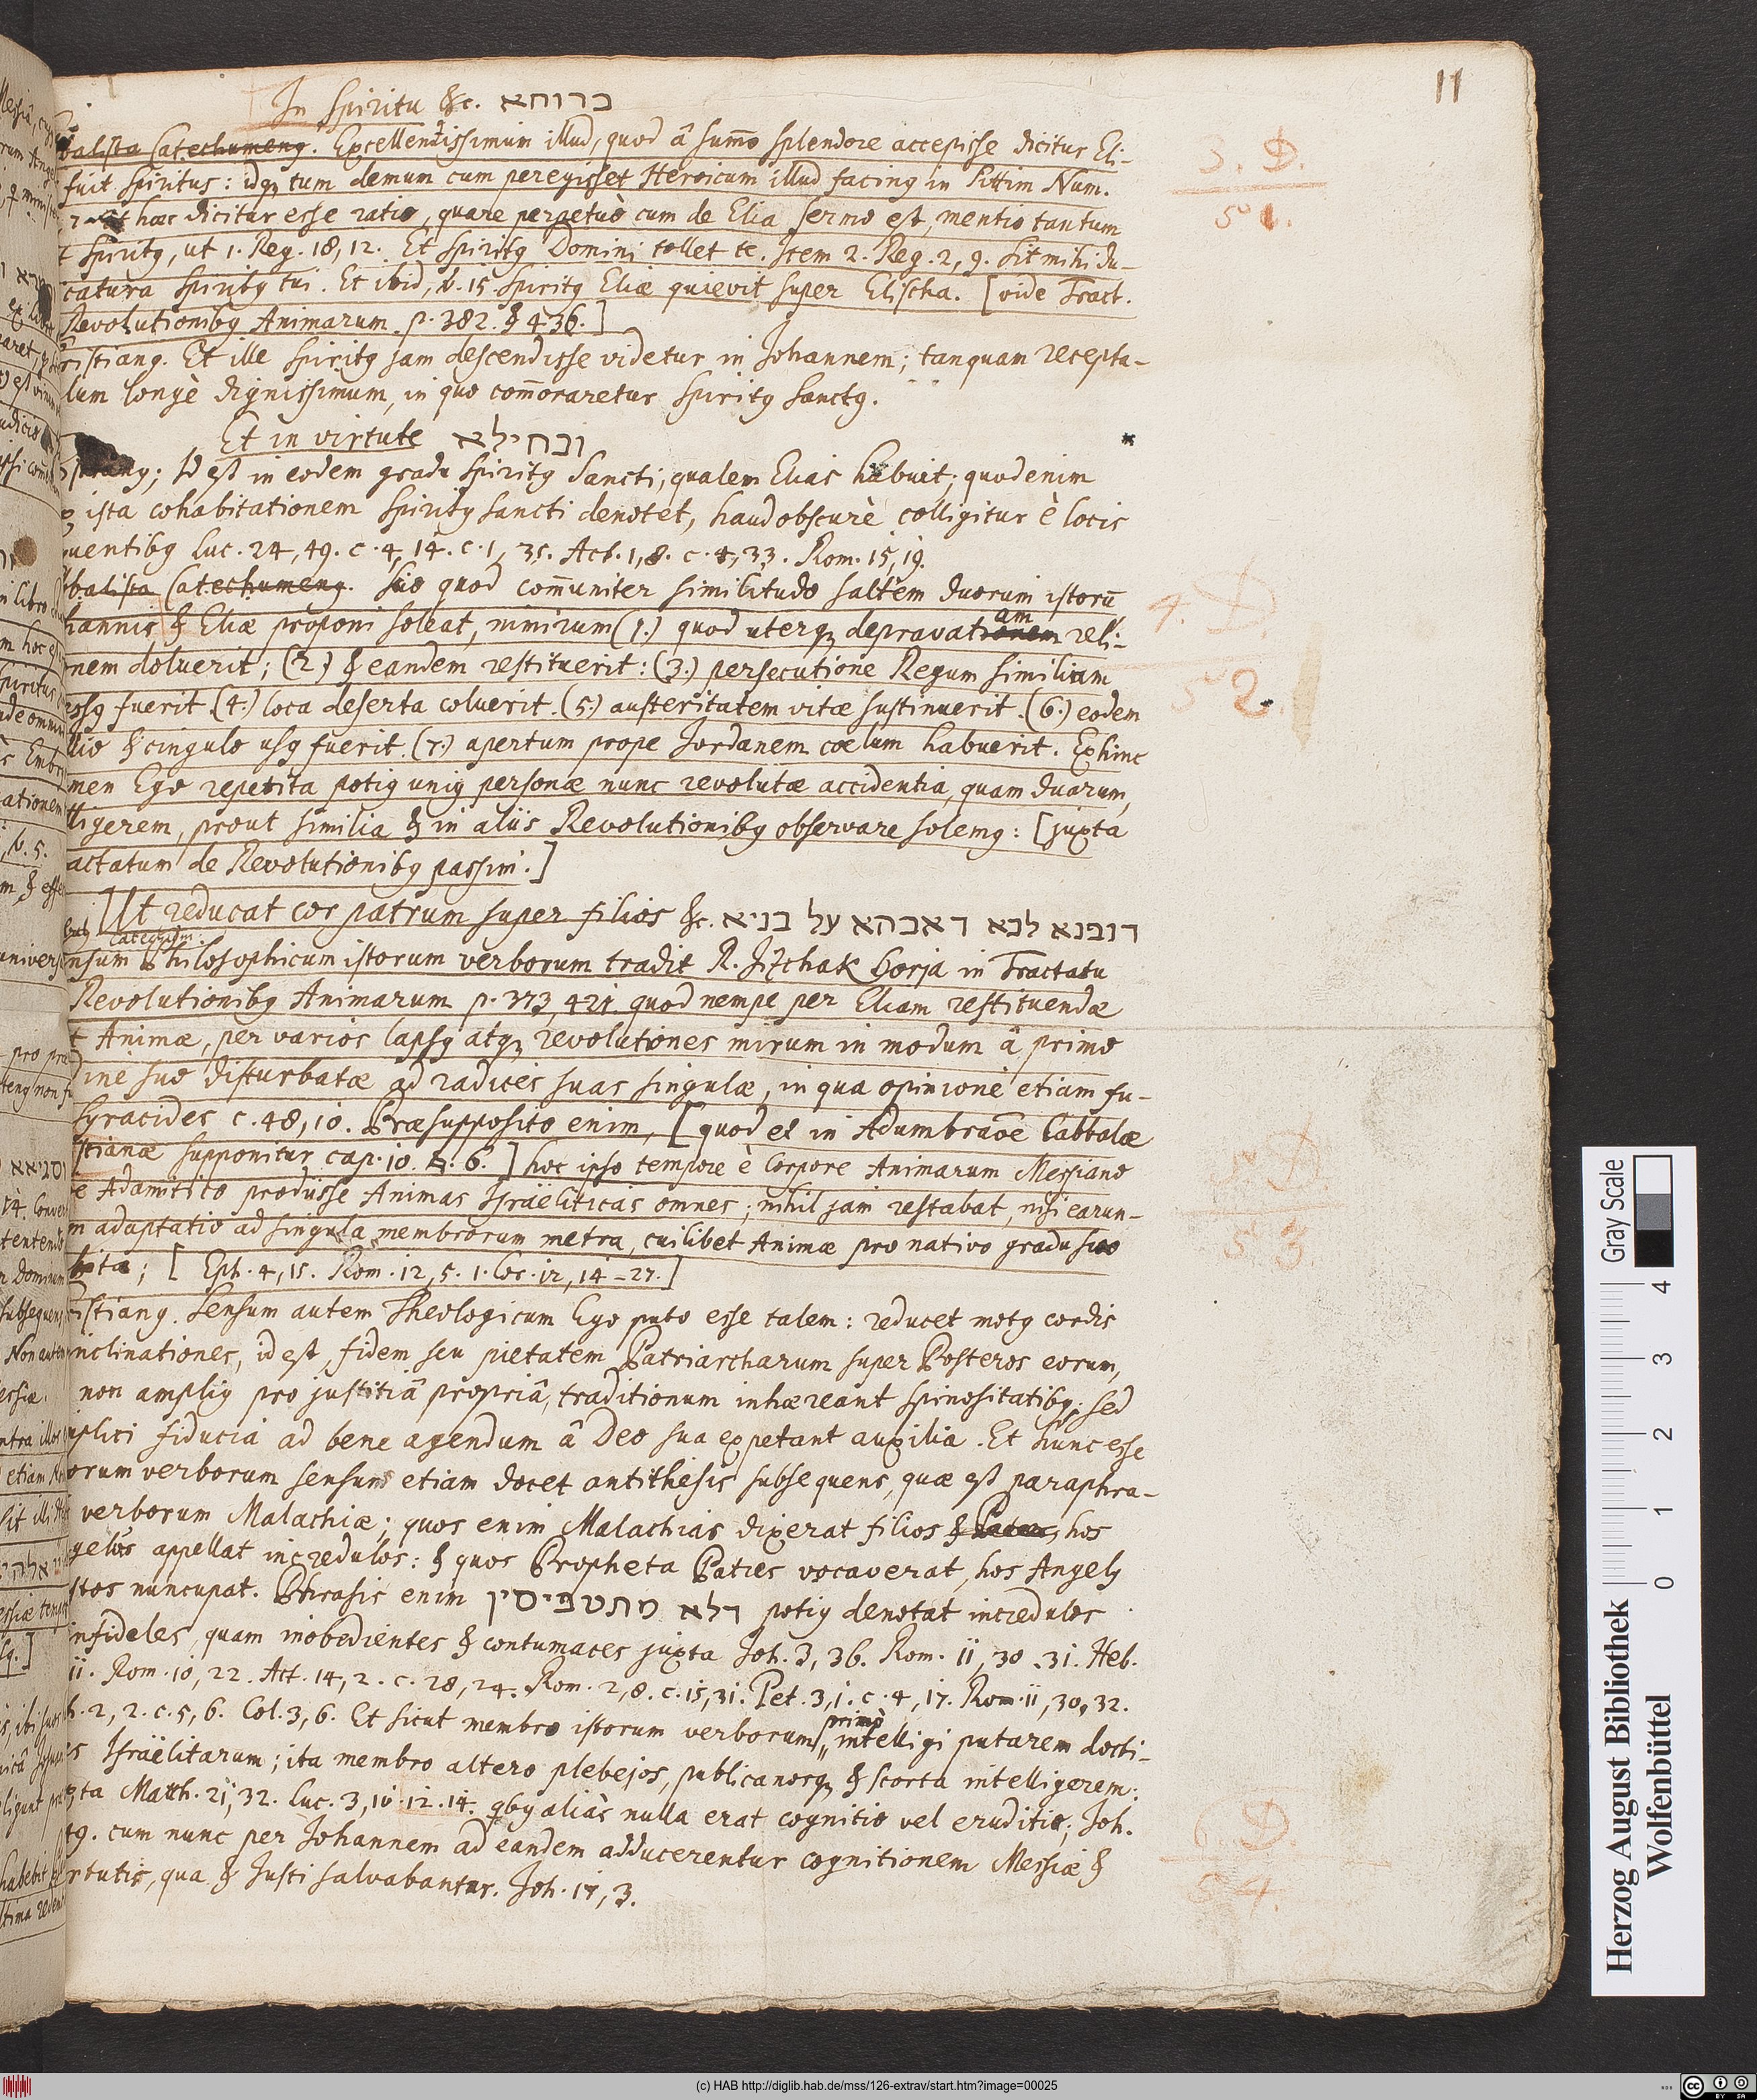 11
In Spiritu &c. ברוחא
balista Catechumenꝰ. Excellentissimum illud, quod â sum̄o splendore accepisse dicitur Eli-
fuit Spiritus: idqꝫ tum demum cum peregisset Heroicum illud facinꝰ in Sittim Num.
hæc dicitur esse ratio, quare perpetuò cum de Elia sermo est, mentio tantum
t Spiritꝰ, ut 1. Reg. 18, 12. Et Spiritꝰ Domini tollet te. Item 2. Reg. 2, 9. Sit mihi du-
catura Spiritꝰ tui. Et ibid, v. 15. Spiritꝰ Eliæ quievit super Elischa. [vide Tract.
Revolutionibꝰ Animarum. p. 382. & 436.]
ristianꝰ. Et ille Spiritꝰ jam descendisse videtur in Johannem; tanquam recepta-
lum longè dignissimum, in quo com̄oraretur Spiritꝰ Sanctꝰ.
Et in virtute ובחילא
Id est in eodem gradu Spiritꝰ Sancti, qualem Elias habuit; quod enim
ista cohabitationem Spiritꝰ Sancti denotet, haud obscurè colligitur è locis
quentibꝰ Luc. 24, 49. c. 4, 14. c. 1, 35. Act. 1, 8. c. 4, 33. Rom. 15, 19.
balista Catechumenꝰ. Hio quod com̄uniter similitudo saltem duorum istorū
hannis & Eliæ proponi soleat, nimirum (1.) quod uterqꝫ depravationem am reli-
nem doluerit; (2.) & eandem restituerit: (3.) persecutione Regum similium
ossꝰ fuerit. (4.) loca deserta coluerit. (5.) austeritatem vitæ sustinuerit. (6.) eodem
llio & cingulo usꝰ fuerit. (7.) apertum prope Jordanem coelum habuerit. Ex hinc
men Ego repetita potiꝰ uniꝰ personæ nunc revolutæ accidentia, quam duarum,
lligerem, prout similia & in aliis Revolutionibꝰ observare solemꝰ: [juxta
actatum de Revolutionibꝰ passim.]
Ut reducat cor patrum super filios &c. דנפנא לבא דאבהא על בניא
Catechum:
nsum Philosophicum istorum verborum tradit R. Jizchak Lorja in Tractatu
Revolutionibꝰ Animarum p. 373, 421. quod nempe per Eliam restituendæ
t Animæ, per varios lapsꝰ atqꝫ revolutiones mirum in modum â primo
dine suo disturbatæ ad radices suas singulæ, in qua opinione etiam fu-
Syracides c. 48, 10. Præsupposito enim, [quod et in Adumbraōe Cabbalæ
stianæ supponitur cap. 10. §. 6.] hoc ipso tempore è Corpore Animarum Messiano
e Adamitico prodiisse Animas Israëliticas omnes; nihil jam restabat, nisi earun-
m adaptatio ad singula membrorum metra, cuilibet Animæ pro nativo gradu suo
bita; [Eph. 4, 15. Rom. 12, 5. 1. Cor. 12, 14-27.]
ristianꝰ. Sensum autem Theologicum Ego puto esse talem: reducet motꝰ cordis
inclinationes, id est fidem seu pietatem Patriarcharum super Posteros eorum,
non ampliꝰ pro justitiâ propriâ, traditionum inhæreant spinositatibꝰ; sed
mplici fiducia ad bene agendum â Deo sua expetant auxilia. Et hunc esse
orum verborum sensum etiam docet antithesis subsequens, quæ est paraphra-
verborum Malachiæ; quos enim Malachias dixerat filios & Patres, hos
gelꝰ appellat incredulos: & quos Propheta Patres vocaverat, hos Angelꝰ
stos nuncupat. Phrasis enim דלא מתטפיסין potiꝰ denotat incredulos
infideles, quam inobedientes & contumaces juxta Joh. 3, 36. Rom. 11, 30. 31. Heb.
11. Rom. 10, 22. Act. 14, 2. c. 28, 24. Rom. 2, 8. c. 15, 31. Pet. 3, 1. c. 4, 17. Rom. 11, 30, 32.
h. 2, 2. c. 5, 6. Col. 3, 6. Et sicut membro istorum verborum primo intelligi putarem docti-
es Israëlitarum; ita membro altero plebejos, publicanosqꝫ & scorta intelligerem:
xta Matth. 21, 32. Luc. 3, 10. 12. 14. qbꝰ aliàs nulla erat cognitio vel eruditio; Joh.
49. cum nunc per Johannem ad eandem adducerentur cognitionem Messiæ &
rtutis, qua & Justi salvabantur. Joh. 17, 3.
3. D.
51.
4. D.
52.
5. D.
53
6. D.
54.
Gray Scale
0 1 2 3 4
Herzog August Bibliothek
Wolfenbüttel
(c) HAB http://diglib.hab.de/mss/126-extrav/start.htm?image=00025